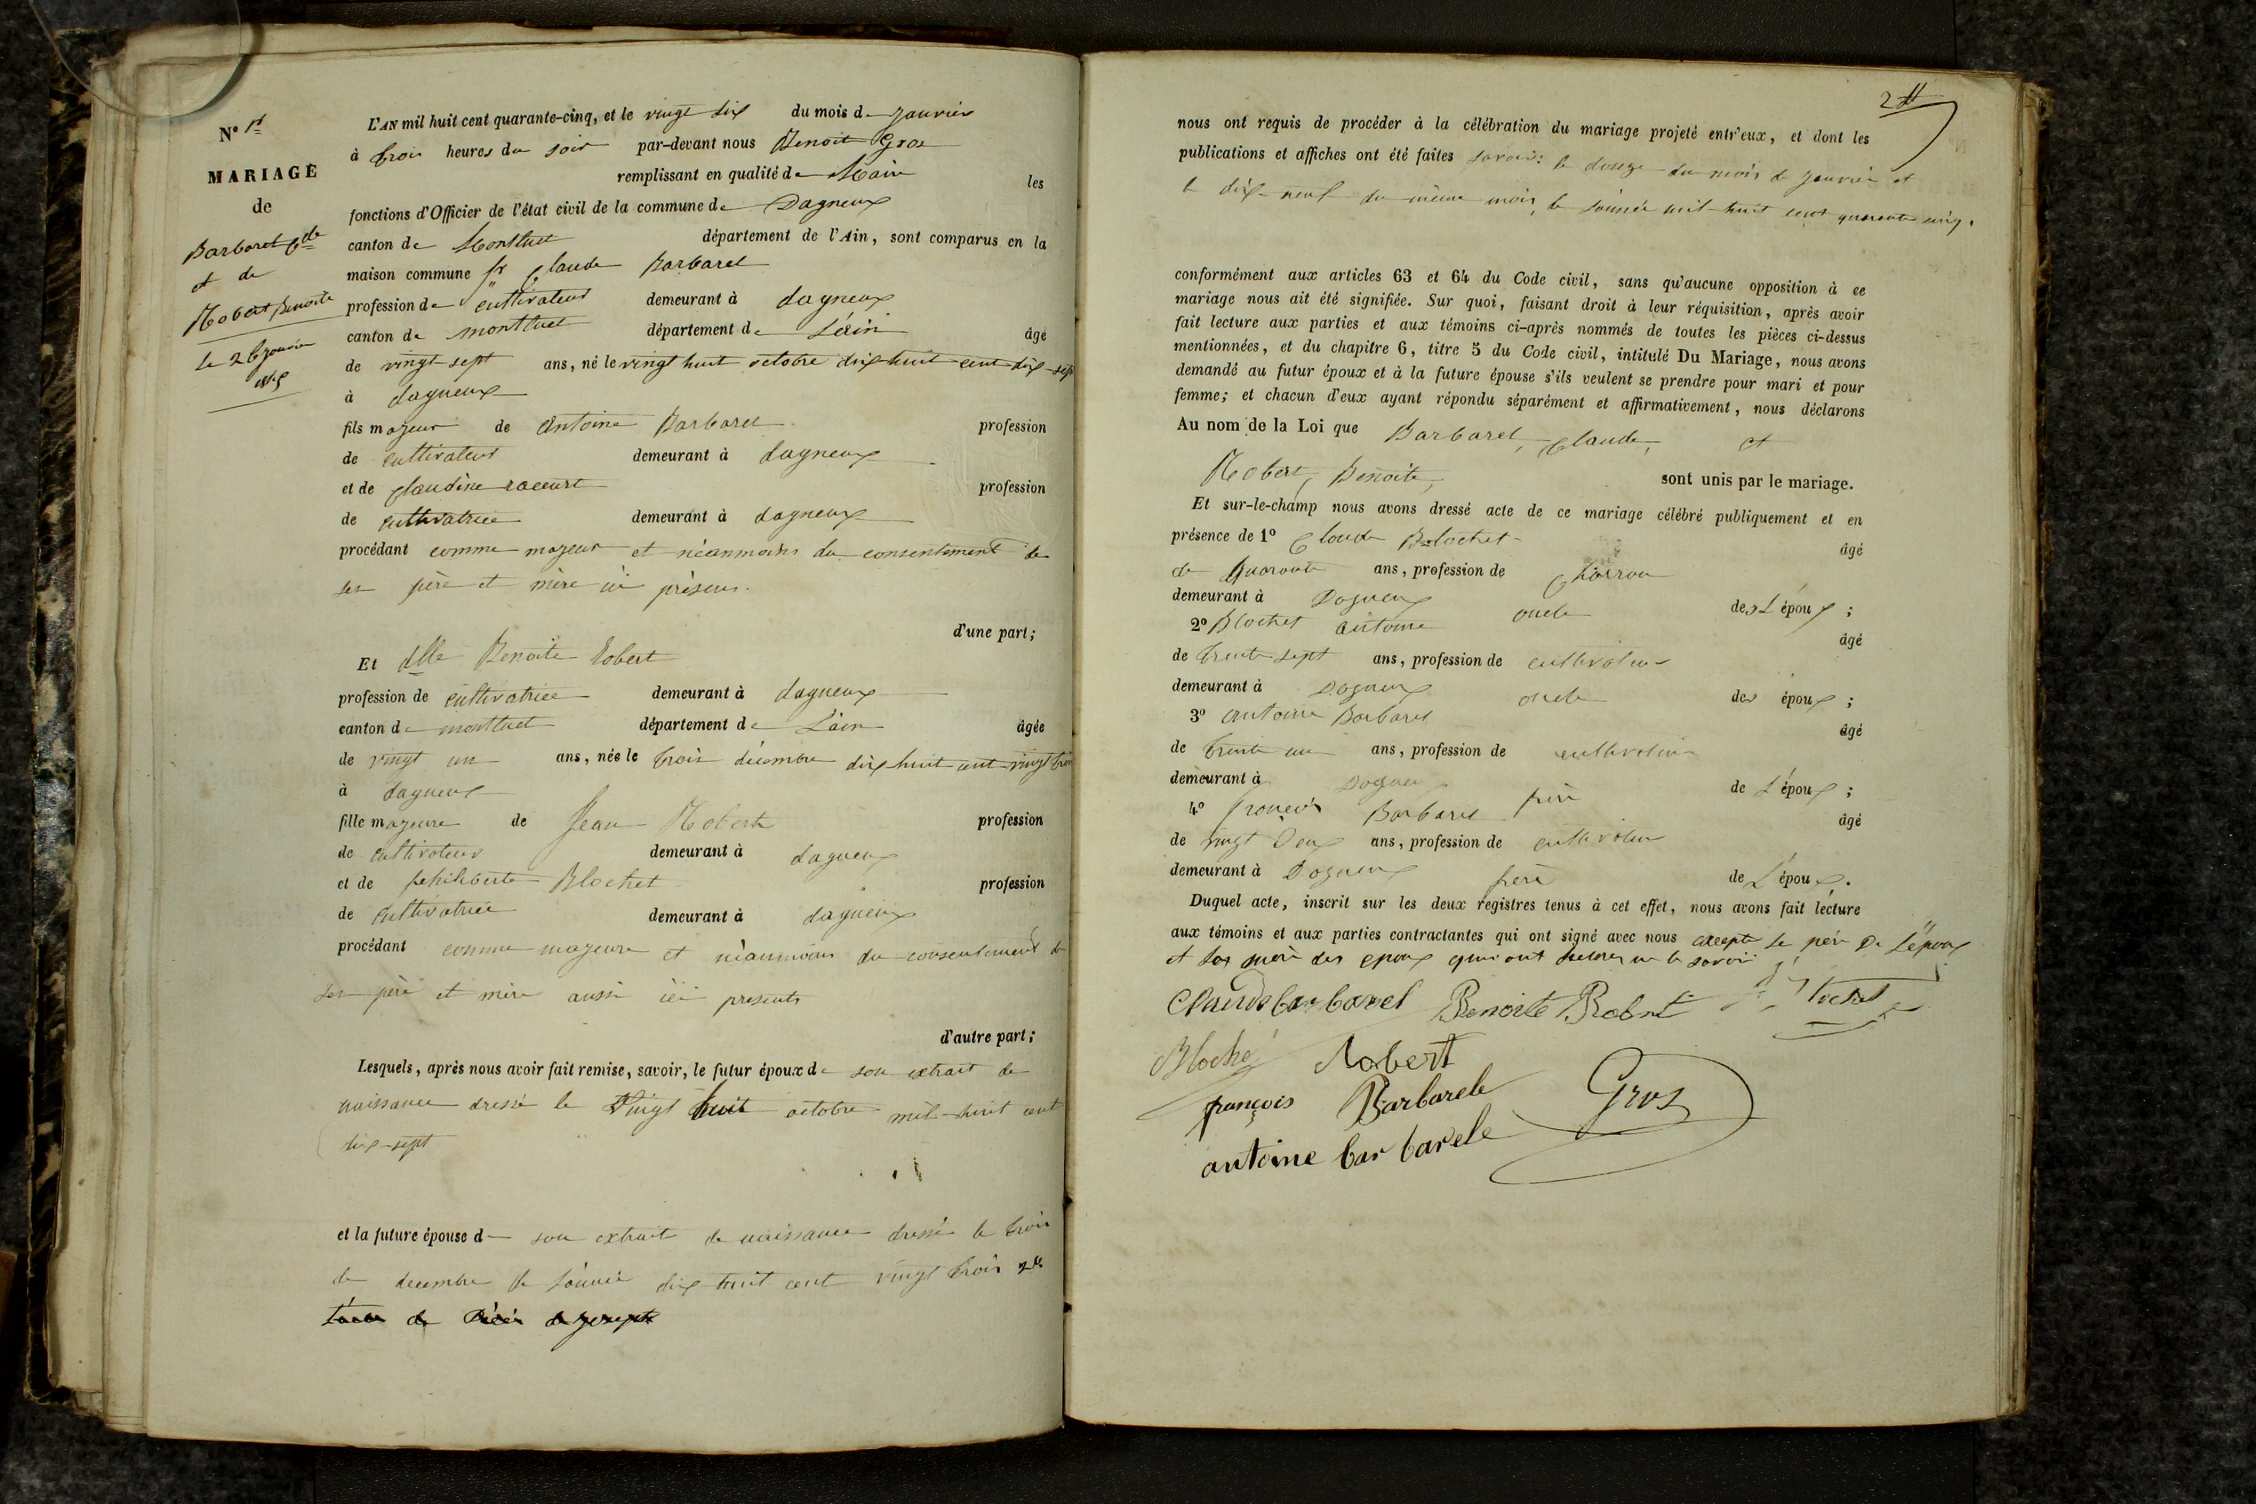 N° 1er
MARIAGE
de
Barbaret Cde
et de
Robert Benoite
le 26 janvier
1845
L'AN mil huit cent quarante-cinq, et le vingt six du mois de janvier
à trois heures du soir par-devant nous Benoit Gros
remplissant en qualité de Maire les
fonctions d'Officier de l'état civil de la commune de Dagneux
canton de Montluel département de l'Ain, sont comparus en la
maison commune sr Claude Barbaret
profession de cultivateur demeurant à dagneux
canton de montluel département de L'ain âgé
de vingt-sept ans, né le vingt huit octobre dix huit cent dix-sept
à dagneux
fils majeur de Antoine Barbaret profession
de cultivateur demeurant à dagneux
et de Claudine raccurt profession
de cultivatrice demeurant à dagneux
procédant comme majeur et néanmoins du consentement de
ses père et mère ici présens.
d'une part;
Et dlle Benoite Robert
profession de cultivatrice demeurant à dagneux
canton de montluel département de L'ain âgée
de vingt un ans, née le trois décembre dix huit cent vingt trois
à dagneux
fille majeure de Jean Robert profession
de cultivateur demeurant à dagneux
et de Blochet profession
de cultivatrice demeurant à dagneux
procédant comme majeure et néanmoins du consentement de
ses père et mère aussi ici presents
d'autre part;
Lesquels, après nous avoir fait remise, savoir, le futur époux de son extrait de
naissance dressé le vingt huit octobre mil-huit cent
dix-sept
et la future épouse d son extrait de naissance dressé le trois
de decembre de l'année dix huit cent vingt trois
de
2
nous ont requis de procéder à la célébration du mariage projeté entr'eux, et dont les
publications et affiches ont été faites savoir: le douze du mois de janvier et
le dix-neuf du même mois, de l'année mil-huit cent quarante cinq.
conformément aux articles 63 et 64 du Code civil, sans qu'aucune opposition à ce
mariage nous ait été signifiée. Sur quoi, faisant droit à leur réquisition, après avoir
fait lecture aux parties et aux témoins ci-après nommés de toutes les pièces ci-dessus
mentionnées, et du chapitre 6, titre 5 du Code civil, intitulé Du Mariage, nous avons
demandé au futur époux et à la future épouse s'ils veulent se prendre pour mari et pour
femme; et chacun d'eux ayant répondu séparément et affirmativement, nous déclarons
Au nom de la Loi que Barbaret, Claude, et
Robert, Benoite, sont unis par le mariage.
Et sur-le-champ nous avons dressé acte de ce mariage célébré publiquement et en
présence de 1° Claude Blochet âgé
de quarante ans, profession de charron
demeurant à Dagneux oncle des L'époux;
2° Blochet antoine âgé
de trente sept ans, profession de cultivateur
demeurant à Dagneux oncle des époux;
3° antoine Barbaret âgé
de trente un ans, profession de cultivateur
demeurant à Dagneux frère de L'époux;
4° francois Barbaret âgé
de vingt Deux ans, profession de cultivateur
demeurant à Dagneux frère de L'époux.
Duquel acte, inscrit sur les deux registres tenus à cet effet, nous avons fait lecture
aux témoins et aux parties contractantes qui ont signé avec nous excepté le père De L'époux
et les mère des epoux qui ont declarer ne le savoir
Claude barbaret Benoite Robert
Bloché Robert
françois Barbarele Gros
antoine barbarele